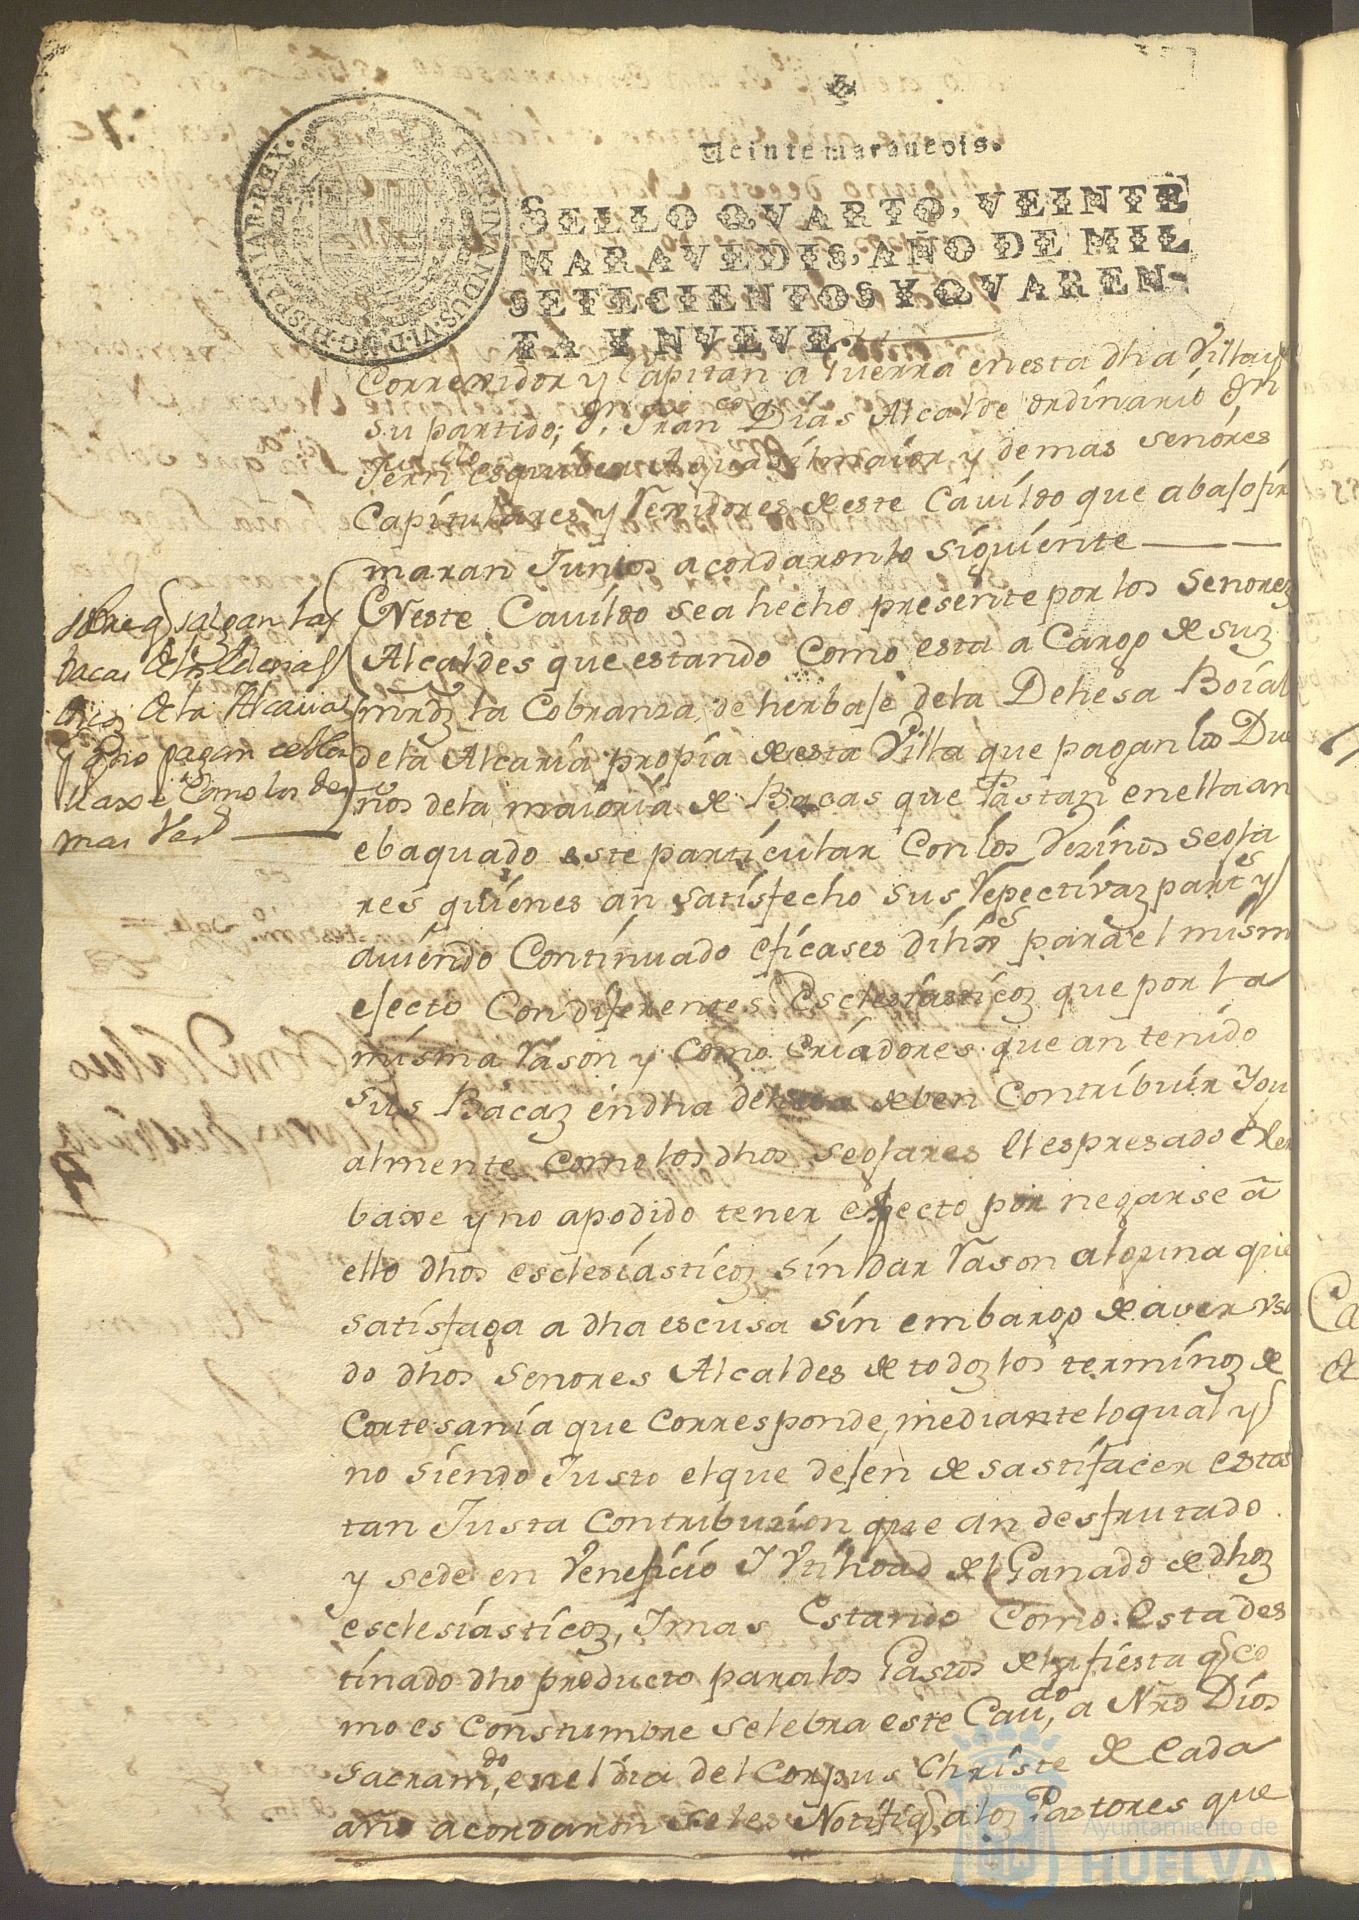 Veinte maravedis.
SELLO QVARTO, VEINTE
MARAVEDIS, AÑO DE MIL
SETECIENTOS Y QVAREN-
TA Y NVEVE.
FERDINANDUS·VI·D·G·HISPANIAR·REX·
Correxidor y Capitan a Guerra en esta dha Villa y
su partido; Dn. Franco Dias Alcalde ordinario
Esquibel Alguasil maior y demas señores
Capitulares y Rexidores de este Cavildo que abajo fir
maran Juntos acordaron lo siguiente
ENeste Cavildo sea hecho presente por los Señores
Alcaldes que estando como esta a Cargo de sus
mrdz la Cobranza de herbaje de la Dehesa Boial
de la Alcaria propia de esta Villa que pagan los Due
ños de la maioria de Bacas que Pastan en ella an
ebaquado este particular con los Vezinos Segla
res quienes an satisfecho sus respectivaz partes y
aviendo Continuado eficases dilixs para el mism
efecto Con diferentes Esclesiasticoz que por la
misma Rason y como Criadores que an tenido
sus Bacaz en dha dehesa deben Contribuir Ygu
almente como los dhos seglares el espresado Her
baxe y no apodido tener efecto por negarse a
ello dhos esclesiasticoz sin dar Rason alguna que
satisfaga a dha escusa sin embargo de aver usa
do dhos Señores Alcaldes de todoz los terminoz de
Cortesania que corresponde, mediante lo qual y
no siendo Justo el que dejen de sastifacer estas
tan Justa Contribuzion que an desfrutado
y sede en Veneficio Y Vtilidad del Ganado de dhoz
esclesiasticoz, Y mas Estando Como Esta des
tinado dho producto para los Gastos de la fiesta q co
mo es Constumbre selebra este Cavdo, a Nro Dios
Sacramdo, en el dia del Corpus Christe de Cada
año acordaron se les Notifiq a loz Pastores que
Sobre q salgan las
bacas de los Eclesias
ticoz de la Alcaria
y qno pagan el her
baxe como los de
mas Vesos
Ayuntamiento de
HUELVA